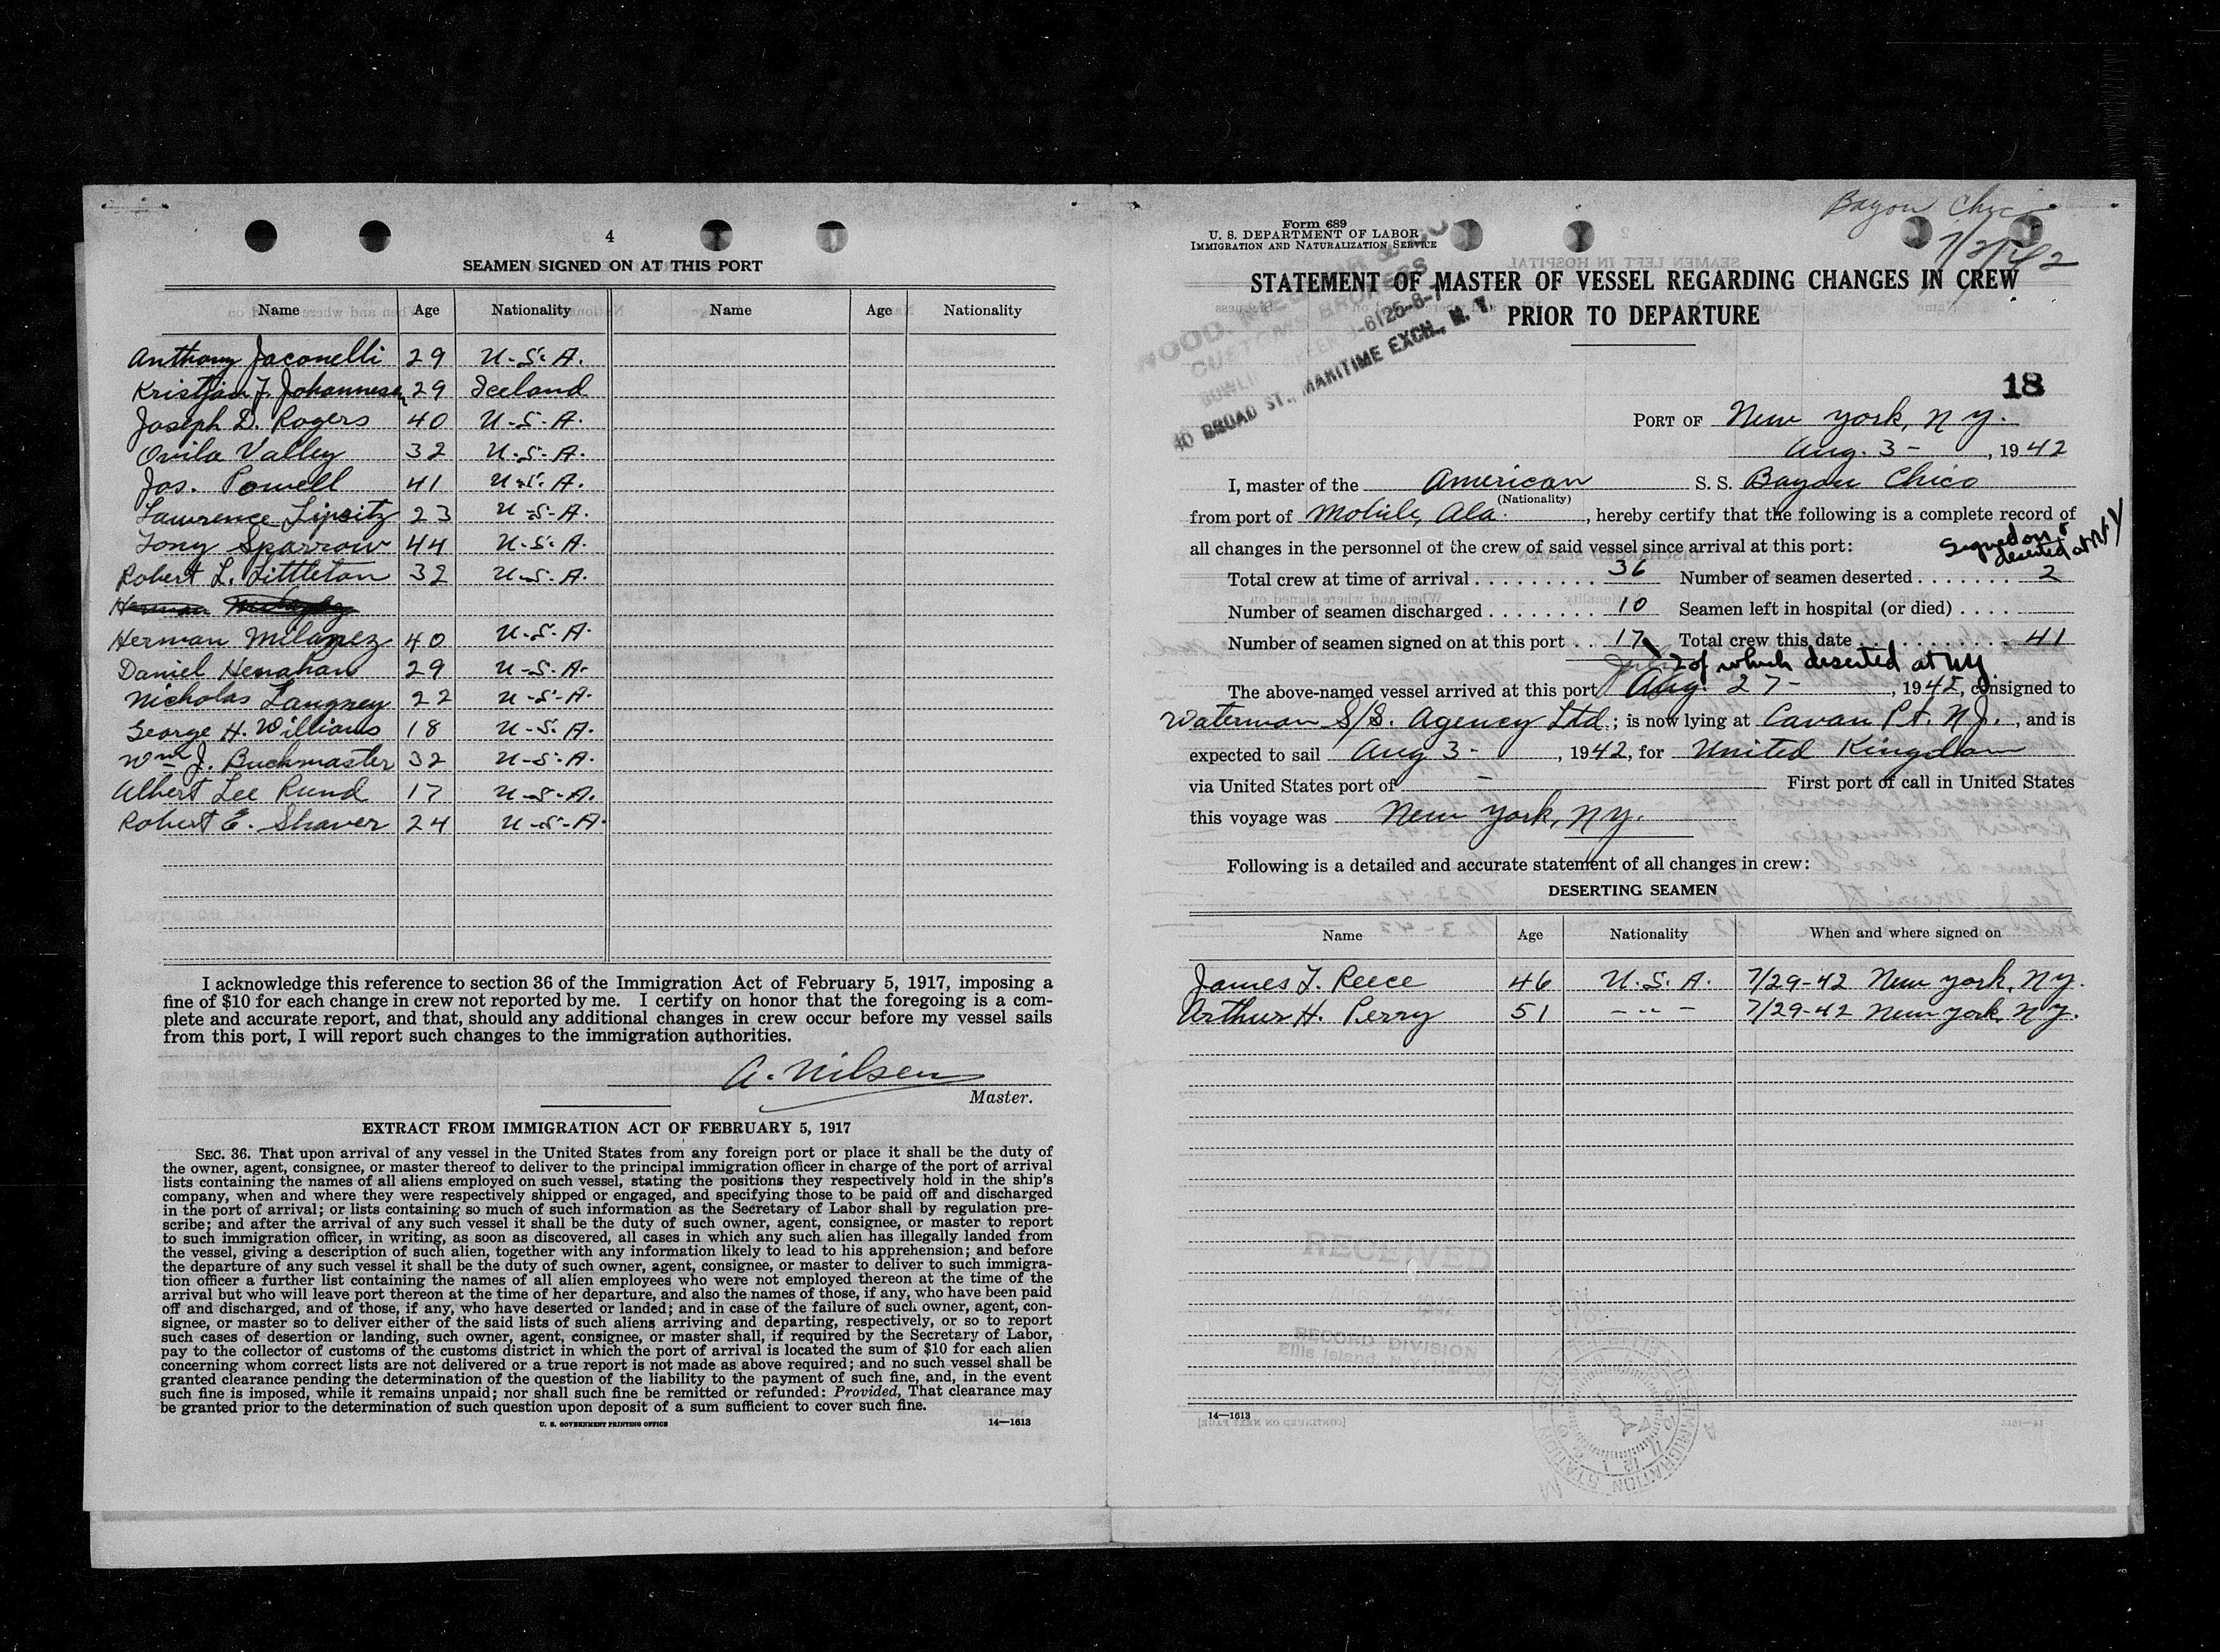 4
SEAMEN SIGNED ON AT THIS PORT
Name Age Nationality Name Age Nationality
Anthony Jaconelli 29 U.S.A.
Kristjan J. Johannesen 29 Iceland
Joseph D. Rogers 40 U.S.A.
Ovila Valley 32 U.S.A.
Jos. Powell 41 U.S.A.
Lawrence Lipsitz 23 U.S.A.
Tony Sparrow 44 U.S.A.
Robert L. Littleton 32 U.S.A.
Herman
Herman Milanez 40 U.S.A.
Daniel Henahan 29 U.S.A.
Nicholas Langney 22 U.S.A.
George H. Williams 18 U.S.A.
Wm J. Buckmaster 32 U.S.A.
Albert Lee Rund 17 U.S.A.
Robert E. Shaver 24 U.S.A.
I acknowledge this reference to section 36 of the Immigration Act of February 5, 1917, imposing a
fine of $10 for each change in crew not reported by me. I certify on honor that the foregoing is a com-
plete and accurate report, and that, should any additional changes in crew occur before my vessel sails
from this port, I will report such changes to the immigration authorities.
A. Nilsen
Master.
EXTRACT FROM IMMIGRATION ACT OF FEBRUARY 5, 1917
SEC. 36. That upon arrival of any vessel in the United States from any foreign port or place it shall be the duty of
the owner, agent, consignee, or master thereof to deliver to the principal immigration officer in charge of the port of arrival
lists containing the names of all aliens employed on such vessel, stating the positions they respectively hold in the ship's
company, when and where they were respectively shipped or engaged, and specifying those to be paid off and discharged
in the port of arrival; or lists containing so much of such information as the Secretary of Labor shall by regulation pre-
scribe; and after the arrival of any such vessel it shall be the duty of such owner, agent, consignee, or master to report
to such immigration officer, in writing, as soon as discovered, all cases in which any such alien has illegally landed from
the vessel, giving a description of such alien, together with any information likely to lead to his apprehension; and before
the departure of any such vessel it shall be the duty of such owner, agent, consignee, or master to deliver to such immigra-
tion officer a further list containing the names of all alien employees who were not employed thereon at the time of the
arrival but who will leave port thereon at the time of her departure, and also the names of those, if any, who have been paid
off and discharged, and of those, if any, who have deserted or landed; and in case of the failure of such owner, agent, con-
signee, or master so to deliver either of the said lists of such aliens arriving and departing, respectively, or so to report
such cases of desertion or landing, such owner, agent, consignee, or master shall, if required by the Secretary of Labor,
pay to the collector of customs of the customs district in which the port of arrival is located the sum of $10 for each alien
concerning whom correct lists are not delivered or a true report is not made as above required; and no such vessel shall be
granted clearance pending the determination of the question of the liability to the payment of such fine, and, in the event
such fine is imposed, while it remains unpaid; nor shall such fine be remitted or refunded: Provided, That clearance may
be granted prior to the determination of such question upon deposit of a sum sufficient to cover such fine.
U. S. GOVERNMENT PRINTING OFFICE 14—1613
Bayou Chico
7/2/42
Form 689
U. S. DEPARTMENT OF LABOR
IMMIGRATION AND NATURALIZATION SERVICE
CUSTOMS BROKERS
40 BROAD ST., MARITIME EXCH., N. Y.
STATEMENT OF MASTER OF VESSEL REGARDING CHANGES IN CREW
PRIOR TO DEPARTURE
18
PORT OF New York, N.Y.
Aug. 3 - , 1942
I, master of the American S. S. Bayou Chico
(Nationality)
from port of Mobile, Ala. , hereby certify that the following is a complete record of
all changes in the personnel of the crew of said vessel since arrival at this port:
Signed on &
deserted at NY
Total crew at time of arrival 36 Number of seamen deserted 2
Number of seamen discharged 10 Seamen left in hospital (or died)
Number of seamen signed on at this port 17 Total crew this date 41
2 of which deserted at NY
July
The above-named vessel arrived at this port Aug. 27 - , 1942, consigned to
Waterman S/S. Agency Ltd.; is now lying at Cavan Pt. N.J., and is
expected to sail Aug 3 - , 1942, for United Kingdom
via United States port of - First port of call in United States
this voyage was New York, N.Y.
Following is a detailed and accurate statement of all changes in crew:
DESERTING SEAMEN
Name Age Nationality When and where signed on
James J. Reece 46 U.S.A. 7/29-42 New York, N.Y.
Arthur H. Perry 51 - " - 7/29-42 New York, N.Y.
RECEIVED
AUG 1942
RECORD DIVISION
Ellis Island, N.Y.
14—1613